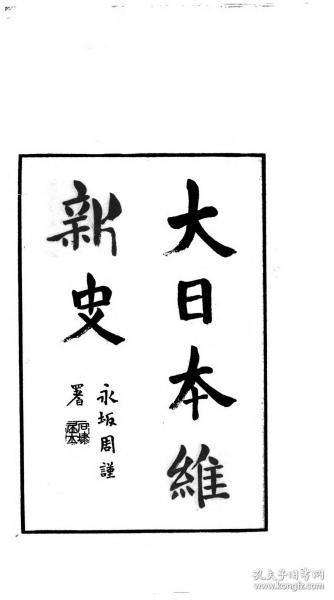 大日本維
新史
永坂周謹
署
孔夫子旧书网